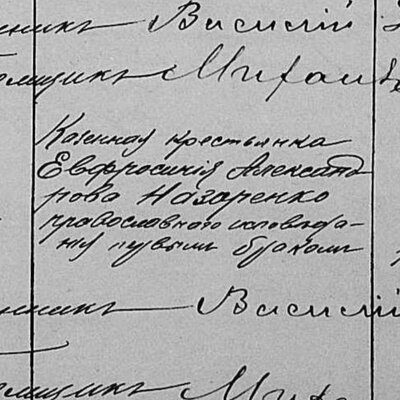 нникъ Василій
мщикъ Михаилъ
Казенная крестьянка
Евфросинія Александ
рова Назаренко
православного исповѣда-
нія первымъ бракомъ
нникъ Василій
мщикъ Миха